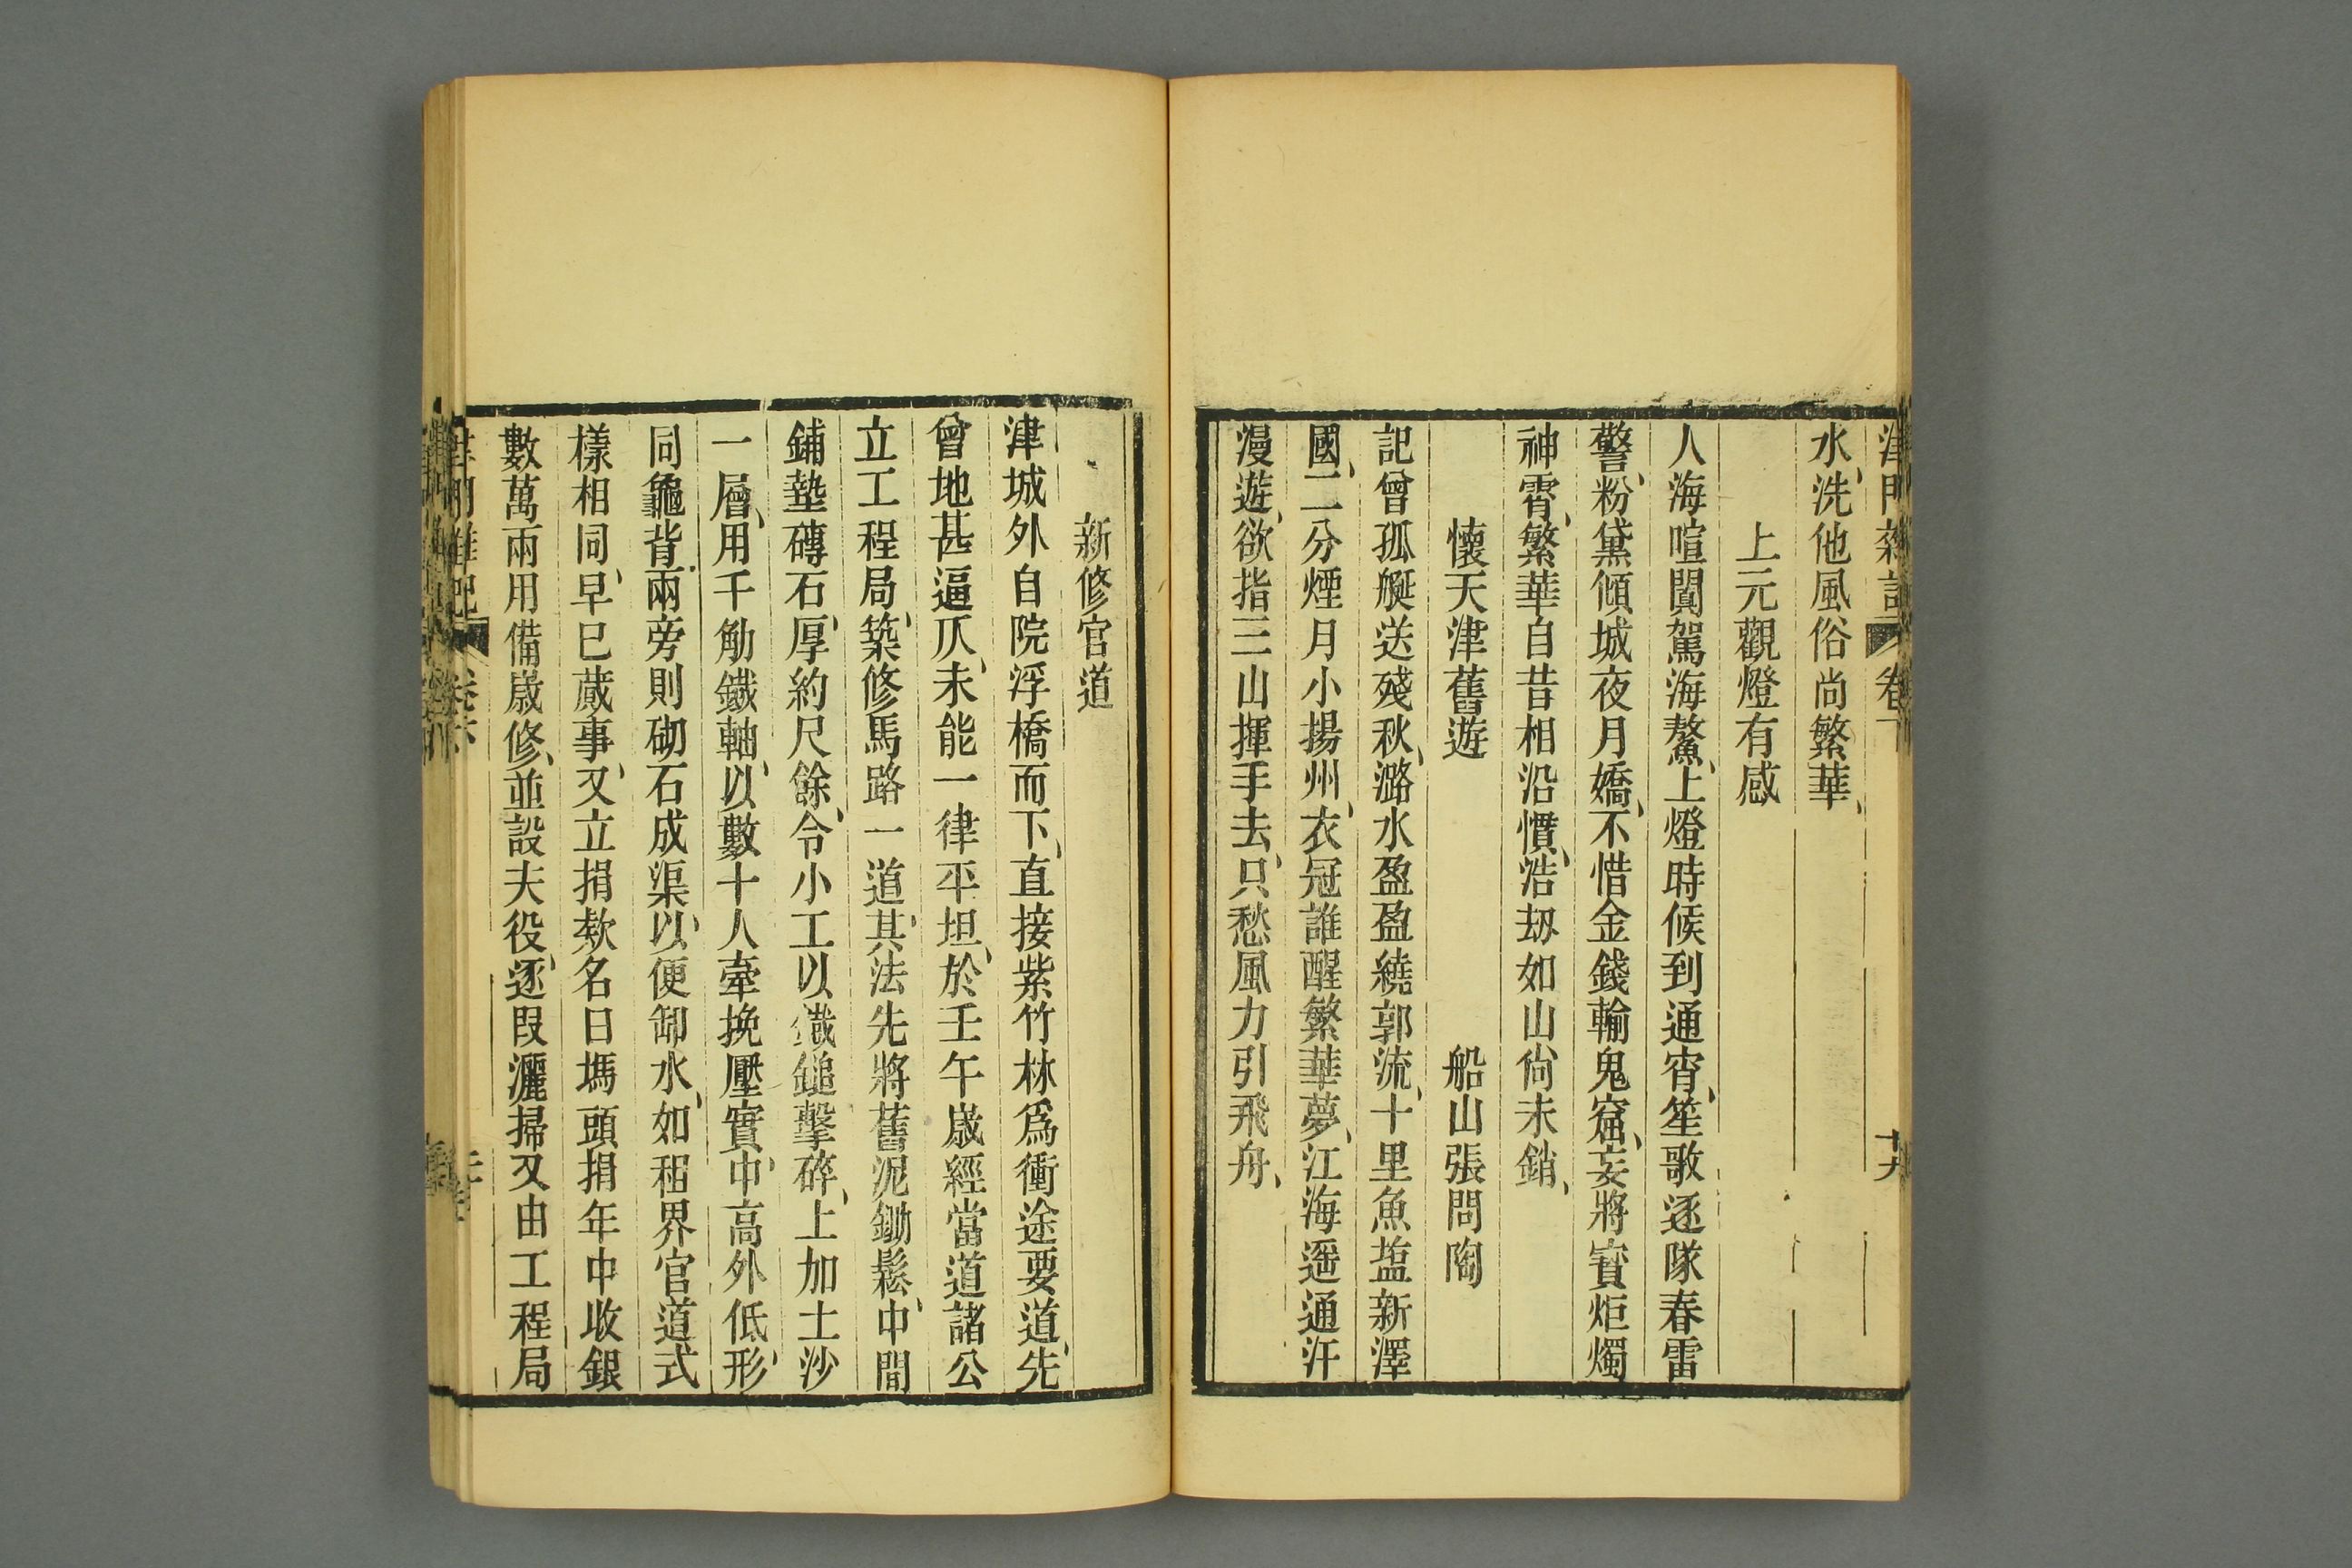 津門雜記 卷下 十九
水洗他風俗尚繁華、
上元觀燈有感
人海喧闐駕海鰲、上燈時候到通宵、笙歌逐隊春雷
警、粉黛傾城夜月嬌、不惜金錢輸鬼窟、妄將寳炬燭
神霄、繁華自昔相沿慣、浩刼如山尙未銷、
懷天津舊遊 船山張問陶
記曾孤艇送殘秋、潞水盈盈繞郭流、十里魚塩新澤
國、二分煙月小揚州、衣冠誰醒繁華夢、江海遥通汗
漫遊、欲指三山揮手去、只愁風力引飛舟、
新修官道
津城外自院浮橋而下、直接紫竹林爲衝途要道、先
曾地甚逼仄、未能一律平坦、於壬午歲經當道諸公
立工程局、築修馬路一道、其法先將舊泥鋤鬆、中間
鋪墊磚石、厚約尺餘、令小工以鐵鎚擊碎、上加土沙
一層、用千觔鐵軸、以數十人牽挽壓實、中高外低、形
同龜背、兩旁則砌石成渠、以便卸水、如租界官道式
樣相同、早已蕆事、又立捐欵名曰碼頭捐年中收銀
數萬兩用備歲修、並設夫役、逐段灑掃又由工程局
津門雜記